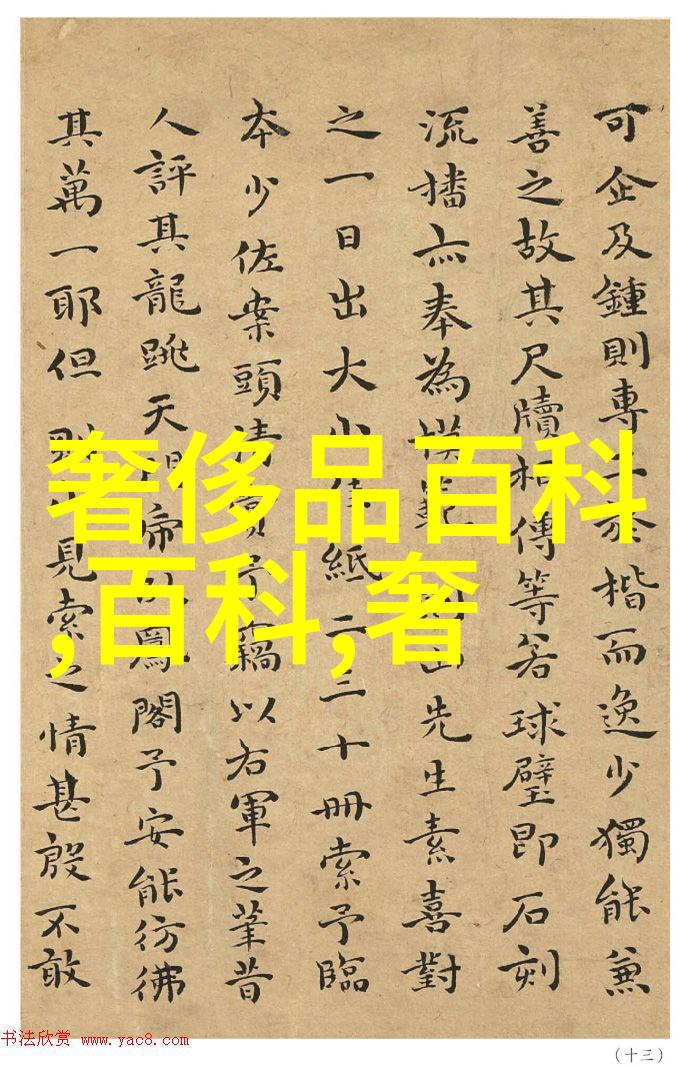 可企及鍾則專於楷而逸少獨能兼
善之故其尺牘相傳等若球璧即石刻
流播亦奉為模範山先生素喜對
之一日出大小佳紙二三十冊索予臨
本少佐案頭清賞予竊以右軍之筆昔
人評其龍跳天門鳳閣予安能彷彿
其萬一耶但見索之情甚殷不敢
奢侈品百科
,百科,奢
书法欣赏 www.yac8.com
（十三）